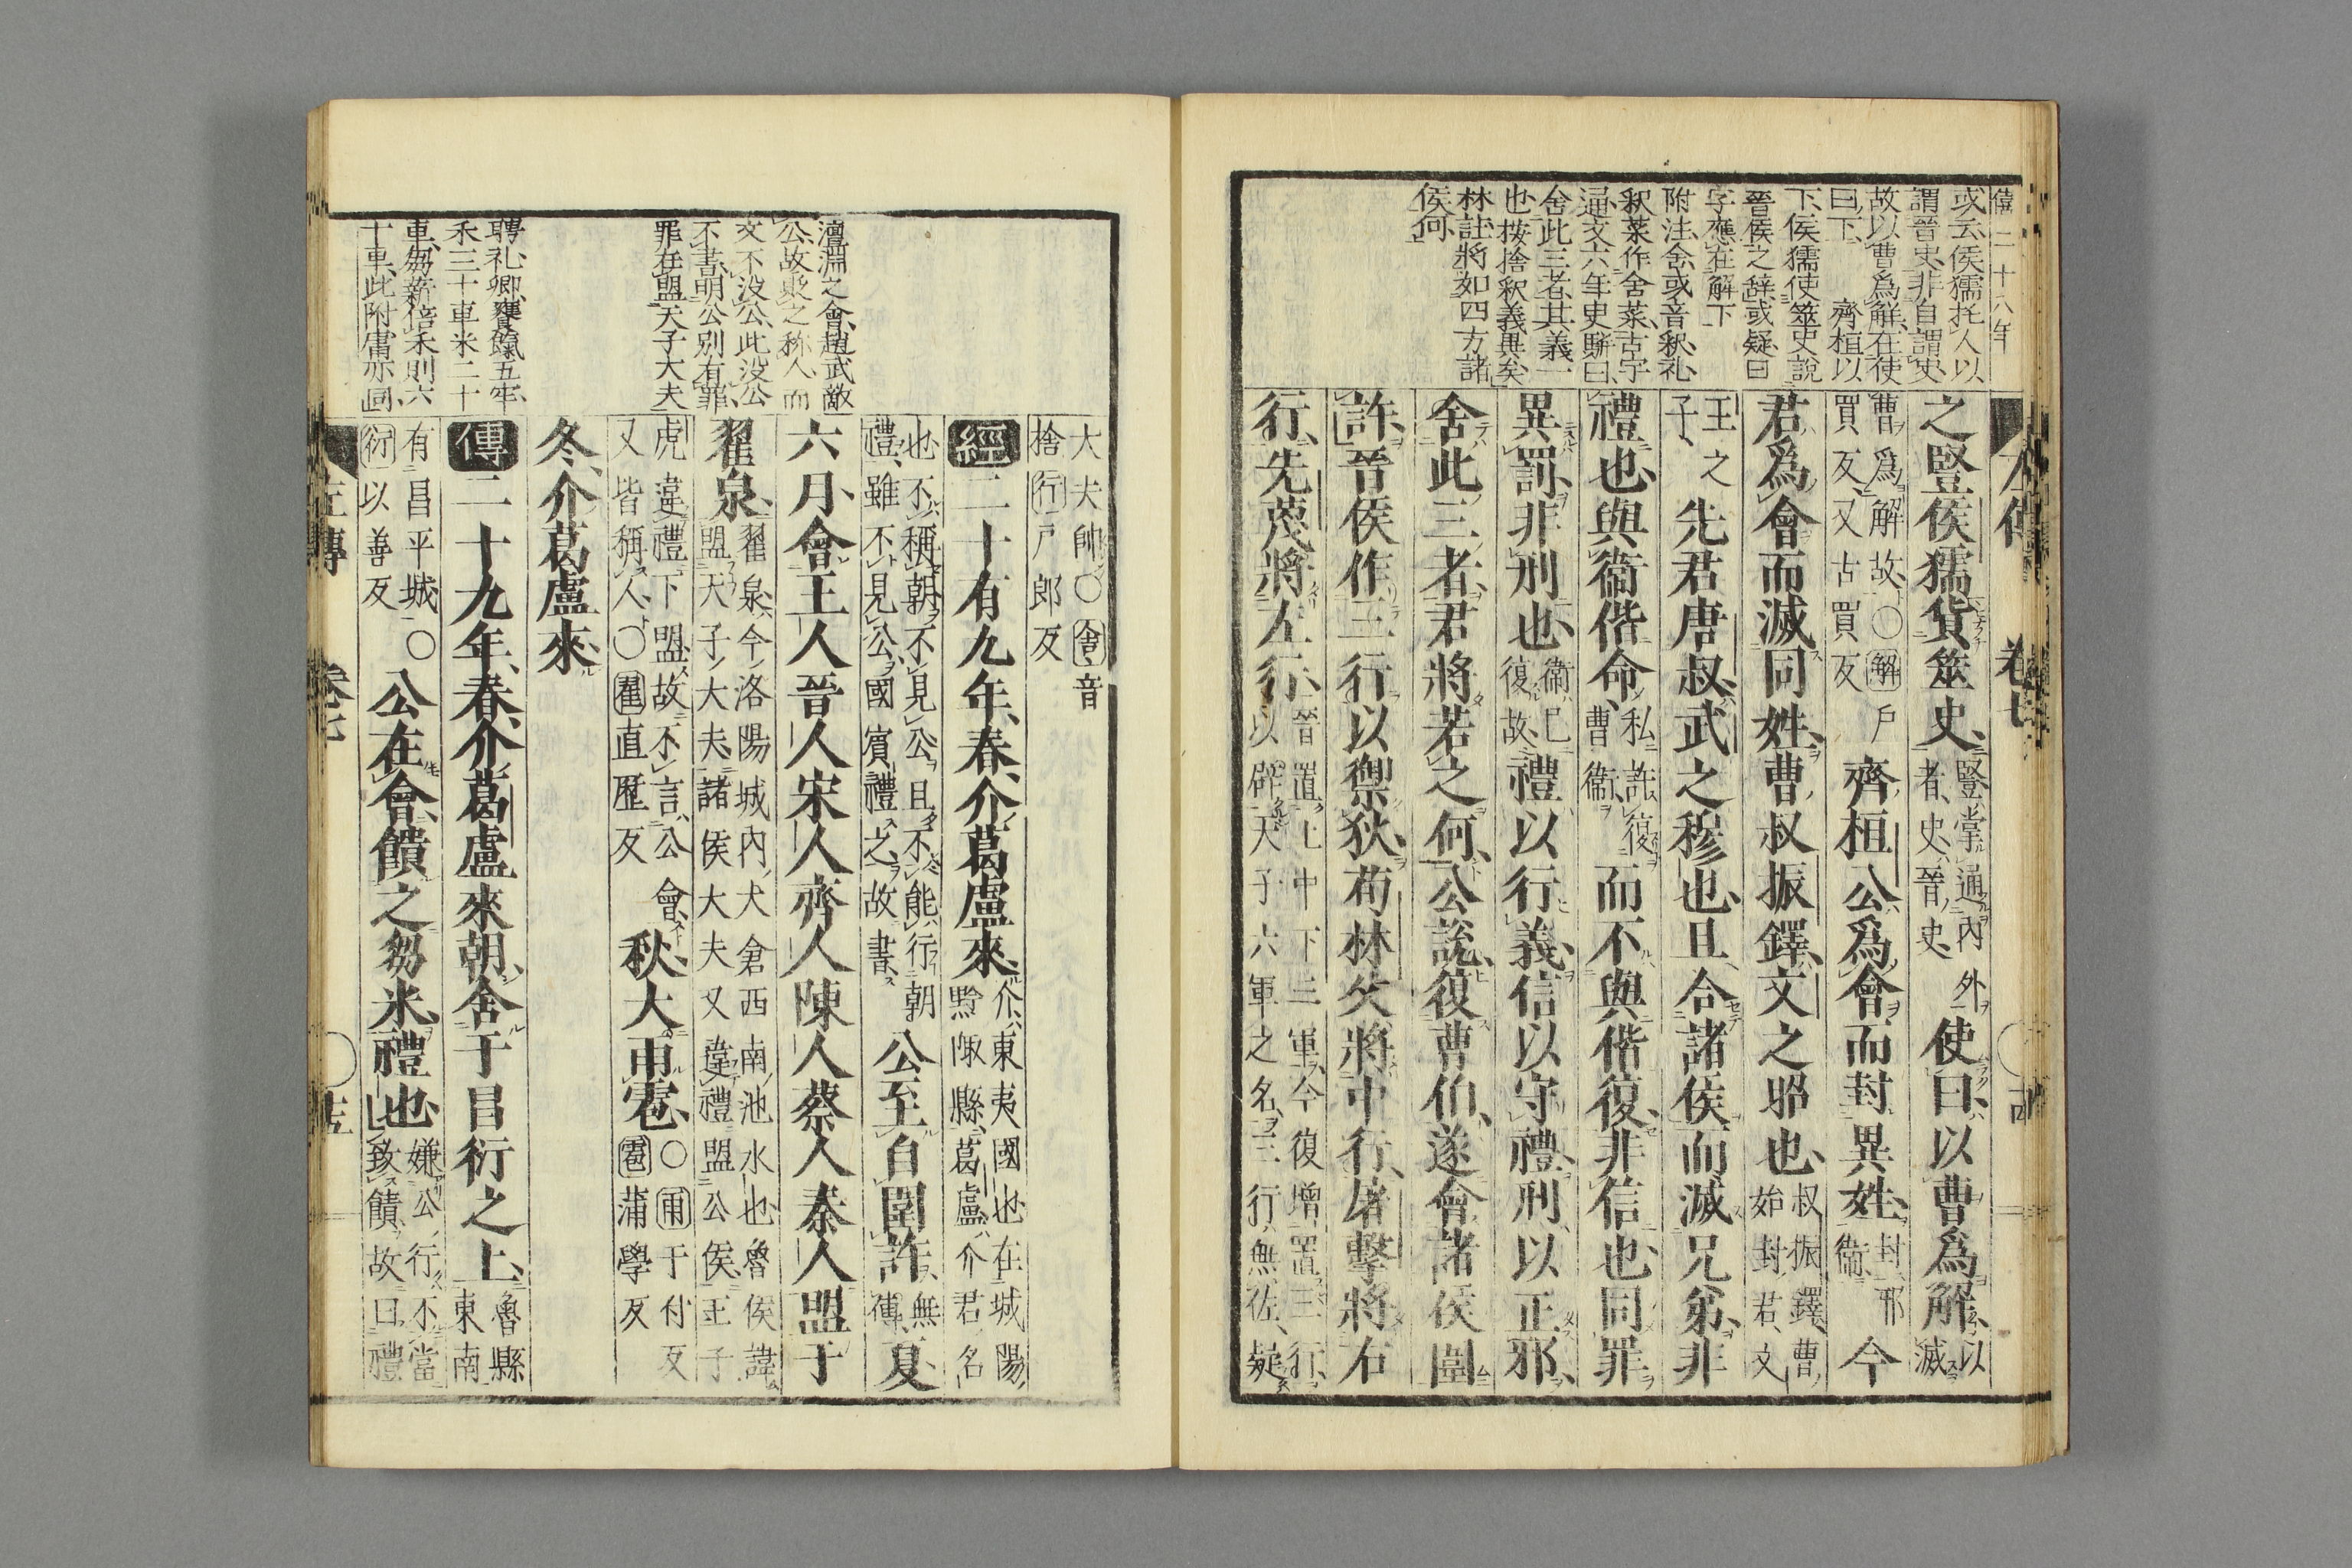 僖二十八年
或云侯獳托人以
謂晉史非自謂史
故以曹爲解在使
曰下 齊桓以
下侯獳使筮史說
晉侯之辞或疑曰
字應在解下
附注舍或音釈礼
釈菜作舍菜古字
通文六年史駢曰
舍此三者其義一
也按捨釈義異矣
林註將如四方諸
侯何
之豎侯獳貨筮史豎掌通內外
者史晉史使曰以曹爲解以
滅
曹爲解故○解戶
買反又古買反齊桓公爲會而封異姓封邢
衞今
君爲會而滅同姓曹叔振鐸文之昭也叔振鐸曹
始封君文
王之
子先君唐叔武之穆也且合諸侯而滅兄弟非
禮也與衞偕命私許復
曹衞而不與偕復非信也同罪
異罰非刑也衞已
復故禮以行義信以守禮刑以正邪
舍此三者君將若之何公說復曹伯遂會諸侯圍
許晉侯作三行以禦狄荀林父將中行屠擊將右
行先蔑將左行晉置上中下三軍今復增置三行
以辟天子六軍之名三行無佐疑
卷七
澶淵之會趙武敵
公故貶之称人而
文不没公此没公
不書明公別有罪
罪在盟天子大夫
聘礼卿饔餼五牢
禾三十車米二十
車芻薪倍禾則六
十車此附庸亦同
大夫帥○舍音
捨行戶郎反
經二十有九年春介葛盧來介東夷國也在城陽
黔陬縣葛盧介君名
也不稱朝不見公且不能行朝
禮雖不見公國賓禮之故書公至自圍許無
傳夏
六月會王人晉人宋人齊人陳人蔡人秦人盟于
翟泉翟泉今洛陽城內大倉西南池水也魯侯諱
盟天子大夫諸侯大夫又違禮盟公侯王子
虎違禮下盟故不言公會
又皆稱人○翟直歷反秋大雨雹○雨于付反
雹蒲學反
冬介葛盧來
傳二十九年春介葛盧來朝舍于昌衍之上魯縣
東南
有昌平城○
衍以善反公在會饋之芻米禮也嫌公行不當
致饋故曰禮
左傳 卷七